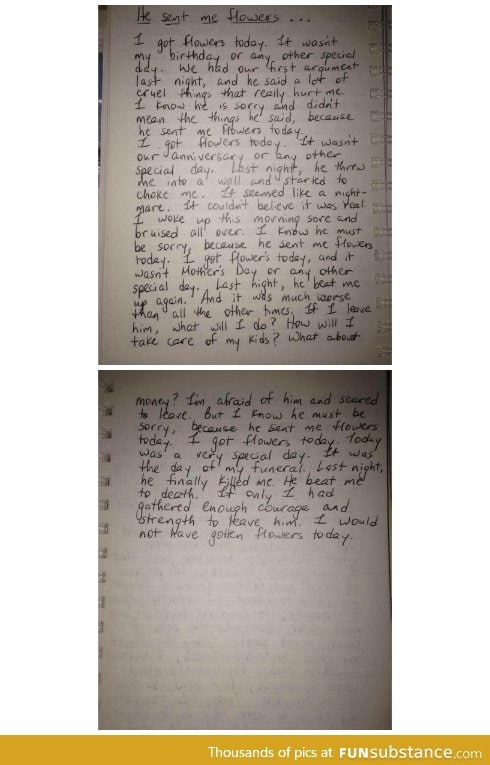 He sent me flowers ...
I got flowers today. It wasn't
my birthday or any other special
day. We had our first argument
last night, and he said a lot of
cruel things that really hurt me.
I know he is sorry and didn't
mean the things he said, because
he sent me flowers today.
I got flowers today. It wasn't
our anniversary or any other
special day. Last night, he threw
me into a wall and started to
choke me. It seemed like a night-
mare. I couldn't believe it was real.
I woke up this morning sore and
bruised all over. I know he must
be sorry, because he sent me flowers
today. I got flowers today, and it
wasn't Mother's Day or any other
special day. Last night, he beat me
up again. And it was much worse
than all the other times. If I leave
him, what will I do? How will I
take care of my kids? What about
money? I'm afraid of him and scared
to leave. But I know he must be
sorry, because he sent me flowers
today. I got flowers today. Today
was a very special day. It was
the day of my funeral. Last night,
he finally killed me. He beat me
to death. If only I had
gathered enough courage and
strength to leave him. I would
not have gotten flowers today.
Thousands of pics at FUNsubstance.com